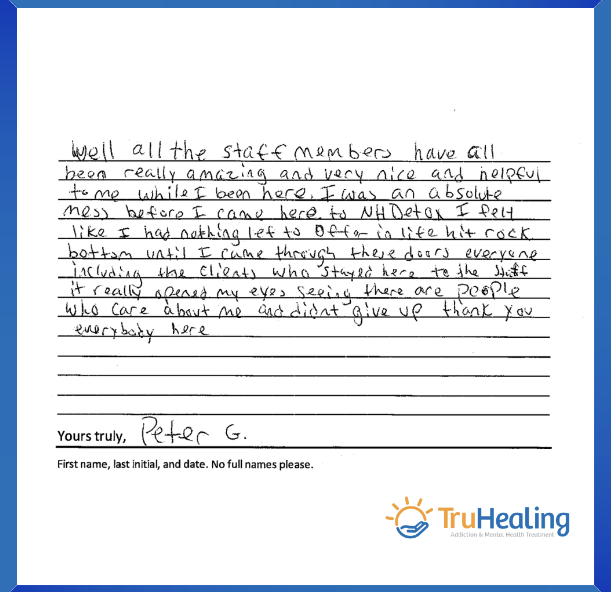 Well all the staff members have all
been really amazing and very nice and helpful
to me while I been here. I was an absolute
mess before I came here to NH Detox I felt
like I had nothing left to offer in life hit rock
bottom until I came through these doors everyone
including the clients who stayed here to the staff
it really opened my eyes seeing there are people
who care about me and didnt give up thank you
everybody here
Yours truly, Peter G.
First name, last initial, and date. No full names please.
TruHealing
Addiction & Mental Health Treatment